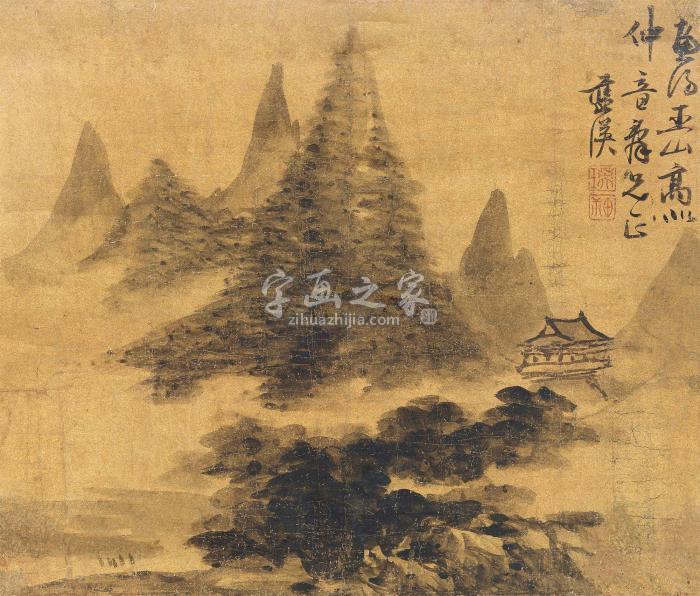 畫得玉山高
仲音尊兄正
藍瑛
字画之家
zihuazhijia.com